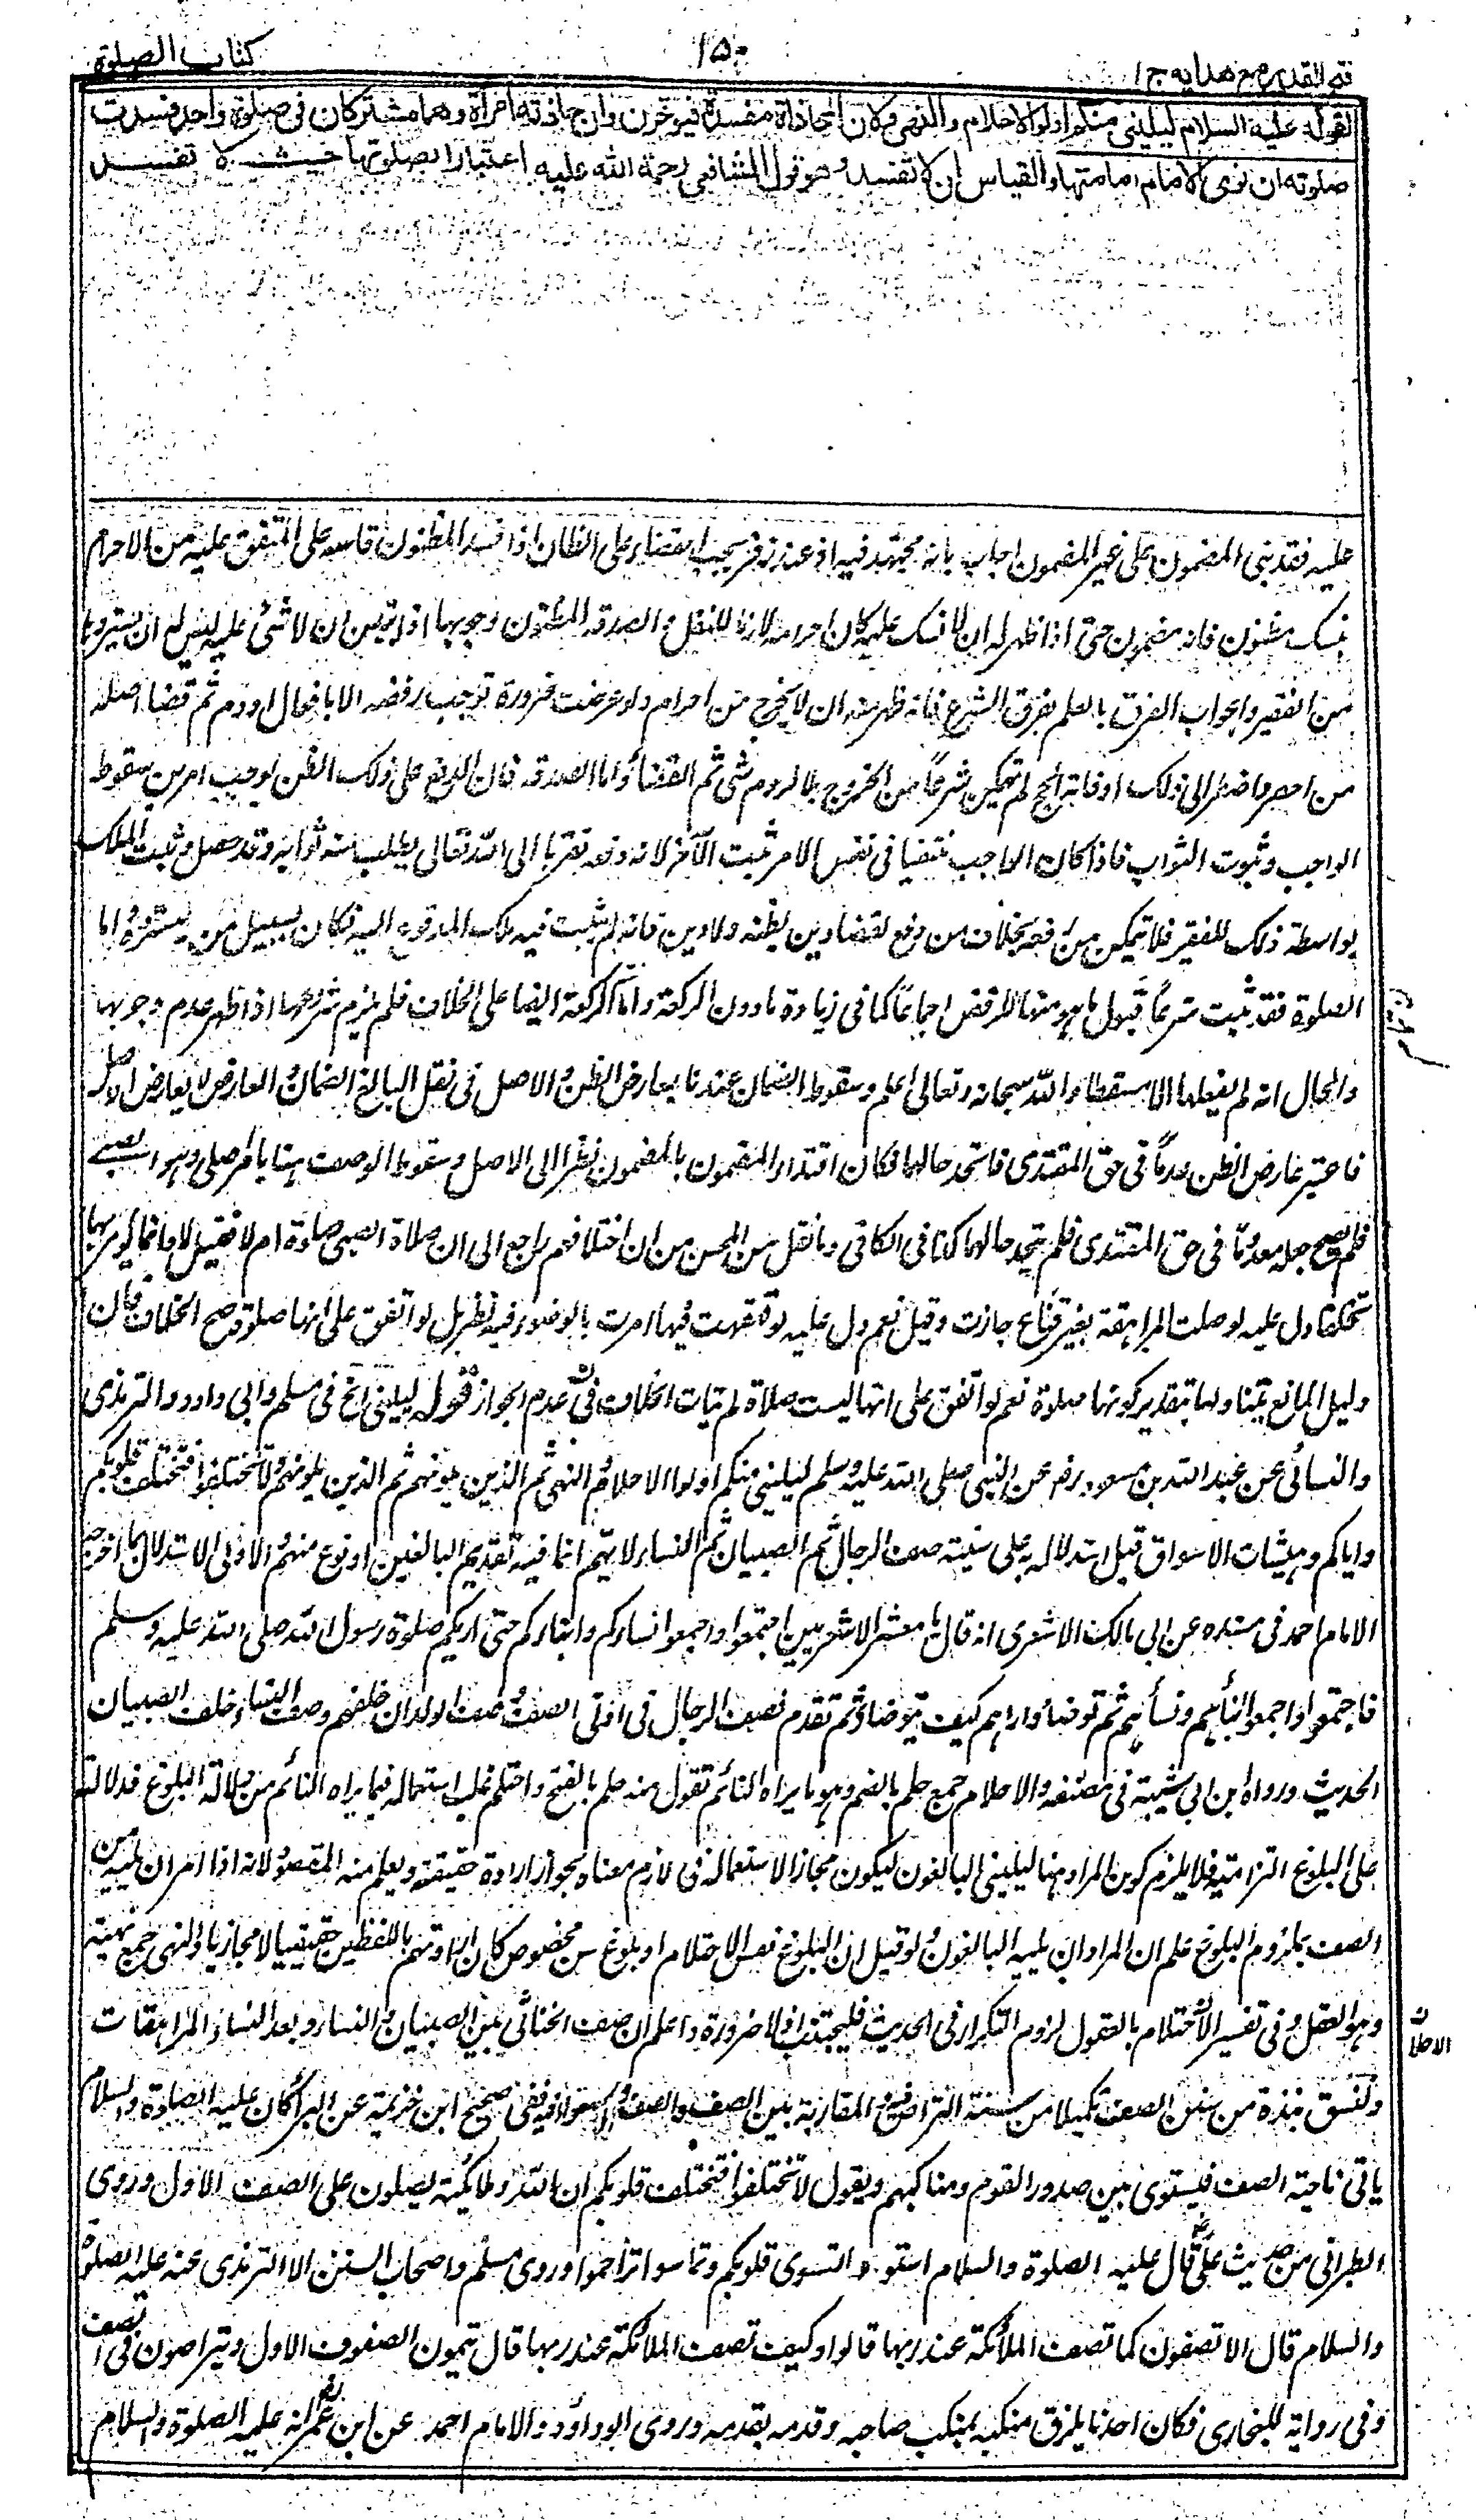 فتح القدير مع هدايه ج ١
١٥٠
كتاب الصلوة
لقوله عليه السلام ليليني منكم اولوا الاحلام والنهى ولان المحاذاة مفسدة فيؤخرن وان حاذته امرأة وهما مشتركان في صلوة واحدة فسدت
صلوته ان نوى الامام امامتها والقياس ان لا تفسد وهو قول الشافعي رحمة الله عليه اعتبارا بصلوتها حيث لا تفسد
عليه فقد بنى المضمون على غير المضمون اجاب بانه مجتهد فيه اذ عند زفر يجب القضاء على الظان اذا فسد المظنون قاسه على المتفق عليه من الاحرام
بنسك مظنون فانه مضمون حتى اذا ظهر له ان لا نسك عليه كان احرامه لازما للنفل والصدقة المظنون وجوبها اذا تبين ان لا شئ عليه ليس له ان يستردها
من الفقير والجواب الفرق بالعلم بفرق الشرع فانه ظهر منه ان لا يخرج من احرام ولو عرضت ضرورة توجب رفضه الا بافعال او دم ثم قضاء اصله
من احصر واضطر الى ذلك او فاته الحج لم يتمكن شرعا من الخروج بلا لزوم شئ ثم القضاء واما الصدقة فان الدفع على ذلك الظن يوجب امرين سقوط
الواجب وثبوت الثواب فاذا كان الواجب منتفيا في نفس الامر ثبت الآخر لانه دفعه تقربا الى الله تعالى يطلب منه ثوابه وقد حصل وثبت الملك
بواسطة ذلك للفقير فلا يتمكن من رفعه بخلاف من دفع لقضاء دين يظنه ولا دين فانه لم يثبت فيه ملك المدفوع اليه فكان بسبيل من يسترده اما
الصلوة فقد ثبت شرعا قبول ما هو منها للرفض اجماعا كما في زيادة ما دون الركعة واما الركعة ايضا على الخلاف فلم يلزم شرعها اذا ظهر عدم وجوبها
والحال انه لم يفعلها الا مسقطا والله سبحانه وتعالى اعلم وسقوط الضمان عندنا بعارض الظن والاصل في نفل البالغ الضمان والعارض لا يعارض الاصل
فاعتبر عارض الظن عدما في حق المقتدى فاتحد حالهما فكان اقتداء المضمون بالمضمون نظرا الى الاصل وسقوط الوصف هنا بامر اصلى وهو الصبى
فلم يصح جعله معدوما في حق المقتدى فلم يتحد حالهما كذا في الكافي وما نقل عن الحسن من ان اختلافهم راجع الى ان صلاة الصبى صلوة ام لا فقيل لا وانما يؤمر بها
تخلقا دل عليه لو صلت المراهقة بغير قناع جازت وقيل نعم دل عليه لو قهقهت فيها امرت بالوضوء فيه نظر بل لو اتفق على انها صلوة صح الخلاف فان
دليل المانع يتناولها بتقدير كونها صلوة نعم لو اتفق على انها ليست صلاة لم يتأت الخلاف في عدم الجواز قوله ليليني الخ في مسلم وابي داود والترمذى
والنسائى عن عبد الله بن مسعود رض عن النبى صلى الله عليه وسلم ليليني منكم اولوا الاحلام والنهى ثم الذين يلونهم ثم الذين يلونهم ولا تختلفوا فتختلف قلوبكم
واياكم وهيشات الاسواق قيل استدلاله به على سنية صف الرجال ثم الصبيان ثم النساء لا يتم انما فيه تقديم البالغين او نوع منهم والاولى الاستدلال بما اخرجه
الامام احمد في مسنده عن ابى مالك الاشعرى انه قال يا معشر الاشعريين اجتمعوا واجمعوا نساءكم وابناءكم حتى اريكم صلوة رسول الله صلى الله عليه وسلم
فاجتمعوا واجمعوا ابنائهم ونسائهم ثم توضأ واراهم كيف يتوضأ ثم تقدم فصف الرجال في ادنى الصف وصف الولدان خلفهم وصف النساء خلف الصبيان
الحديث ورواه ابن ابي شيبة في مصنفه والاحلام جمع حلم بالضم وهو ما يراه النائم تقول منه حلم بالفتح واحتلم غلب استعماله فيما يراه النائم من دلالة البلوغ فدلالته
على البلوغ التزامية فلا يلزم كون المراد هنا ليليني البالغون ليكون مجازا لاستعماله في لازم معناه لجواز ارادة حقيقته ويعلم منه المقصود لانه اذا امر ان يليه من
اتصف بملزوم البلوغ علم ان المراد ان يليه البالغون ولو قيل ان البلوغ نفس الاحتلام او بلوغ سن مخصوص كان ارادتهم باللفظين حقيقيا لا مجازيا والنهى جمع نهية
وهو العقل وفي تفسير الاحتلام بالعقول لزوم التكرار في الحديث فليجتنب اذ لا ضرورة واعلم ان صف الخناثى بين الصبيان والنساء وبعد النساء المراهقات
الاحلام
ولنسق نبذة من سنن الصف تكميلا من سننه التراص فيه والمقاربة بين الصف والصف والاستواء فيه ففي صحيح ابن خزيمة عن البراء كان عليه الصلاة والسلام
ياتى ناحية الصف فيستوى بين صدور القوم ومناكبهم ويقول لا تختلفوا فتختلف قلوبكم ان الله وملائكته يصلون على الصف الاول وروى
الطبرانى من حديث على قال عليه الصلوة والسلام استووا تستوى قلوبكم وتماسوا تراحموا وروى مسلم واصحاب السنن الا الترمذى عنه عليه الصلوة
والسلام قال الا تصفون كما تصف الملائكة عند ربها قالوا وكيف تصف الملائكة عند ربها قال يتمون الصفوف الاول ويتراصون في الصف
وفي رواية للبخارى فكان احدنا يلزق منكبه بمنكب صاحبه وقدمه بقدمه وروى ابو داود والامام احمد عن ابن عمر رض انه عليه الصلوة والسلام